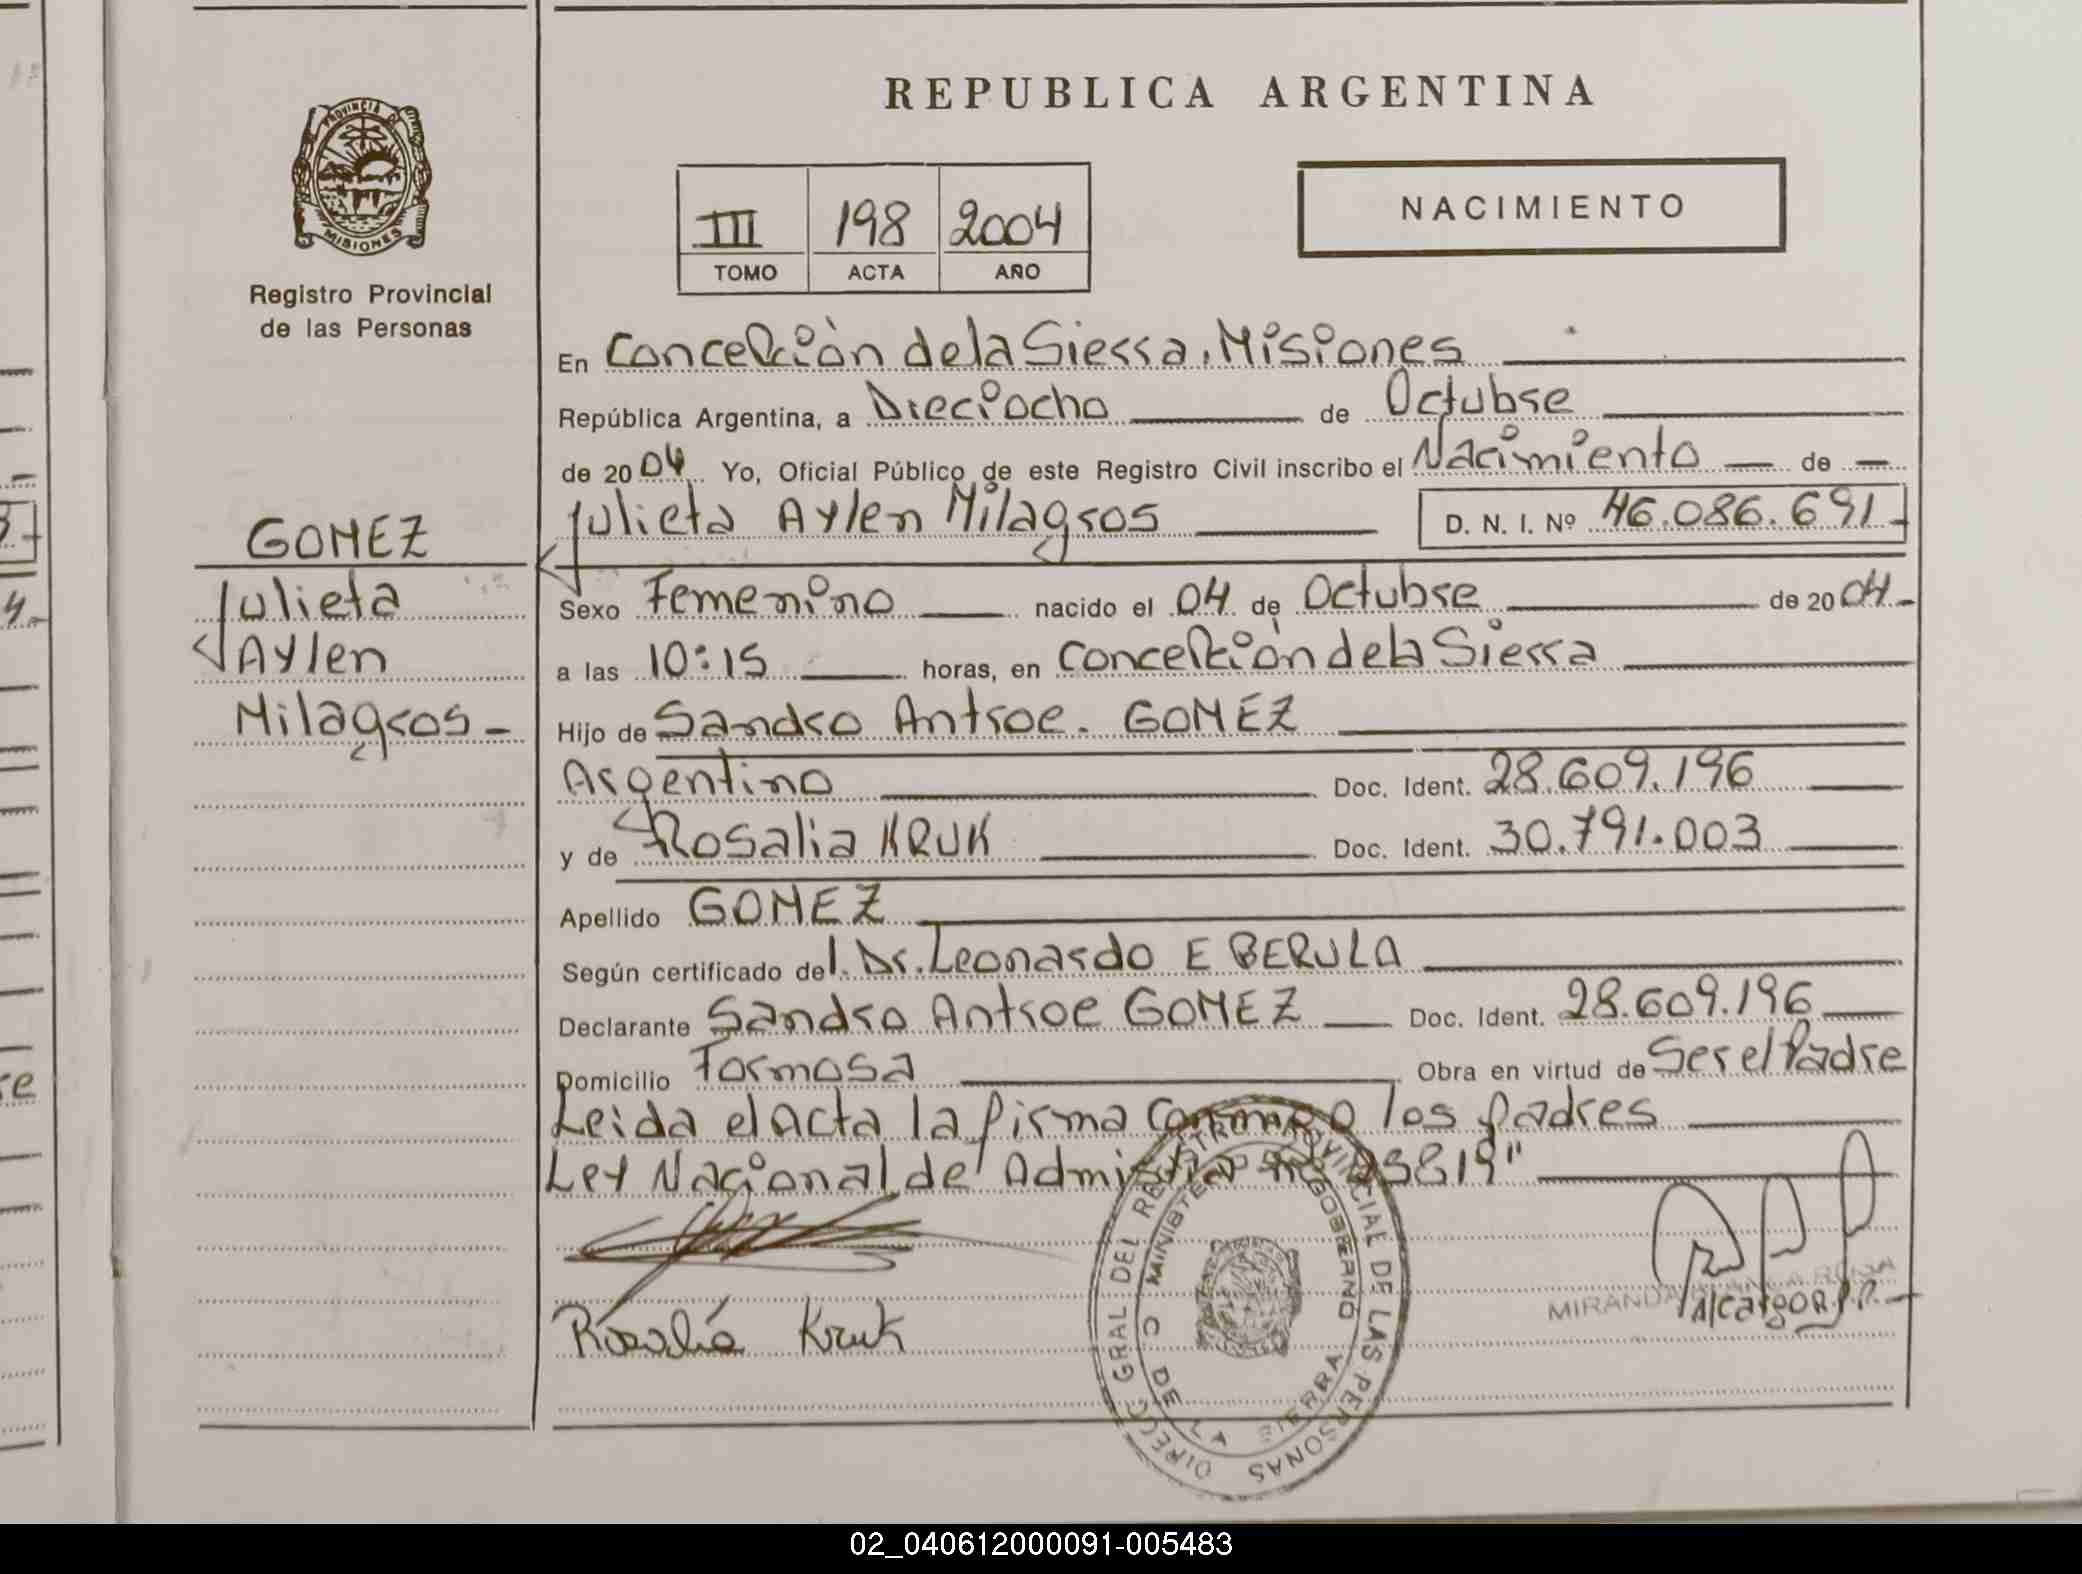 REPUBLICA ARGENTINA
PROVINCIA DE
MISIONES
Registro Provincial
de las Personas
III 198 2004
TOMO ACTA AÑO
NACIMIENTO
En Concepción de la Sierra, Misiones
República Argentina, a Dieciocho de Octubre
de 2004 Yo, Oficial Público de este Registro Civil inscribo el Nacimiento de
Julieta Aylen Milagros D. N. I. Nº 46.086.691
GOMEZ
Julieta
Aylen
Milagros
Sexo Femenino nacido el 04 de Octubre de 2004
a las 10:15 horas, en Concepción de la Sierra
Hijo de Sandro Antroe. GOMEZ
Argentino Doc. Ident. 28.609.196
y de Rosalia KRUK Doc. Ident. 30.791.003
Apellido GOMEZ
Según certificado del. Dr. Leonardo E BERULA
Declarante Sandro Antroe GOMEZ Doc. Ident. 28.609.196
Domicilio Formosa Obra en virtud de Ser el Padre
Leida el Acta la firma conmigo los padres
Ley Nacional de Admistia nº 25819"
Rosalia Kruk
DIRECC GRAL DEL REGISTRO PROVINCIAL DE LAS PERSONAS
MINISTERIO DE GOBIERNO
C DE LA SIERRA
MIRANDA
02_040612000091-005483